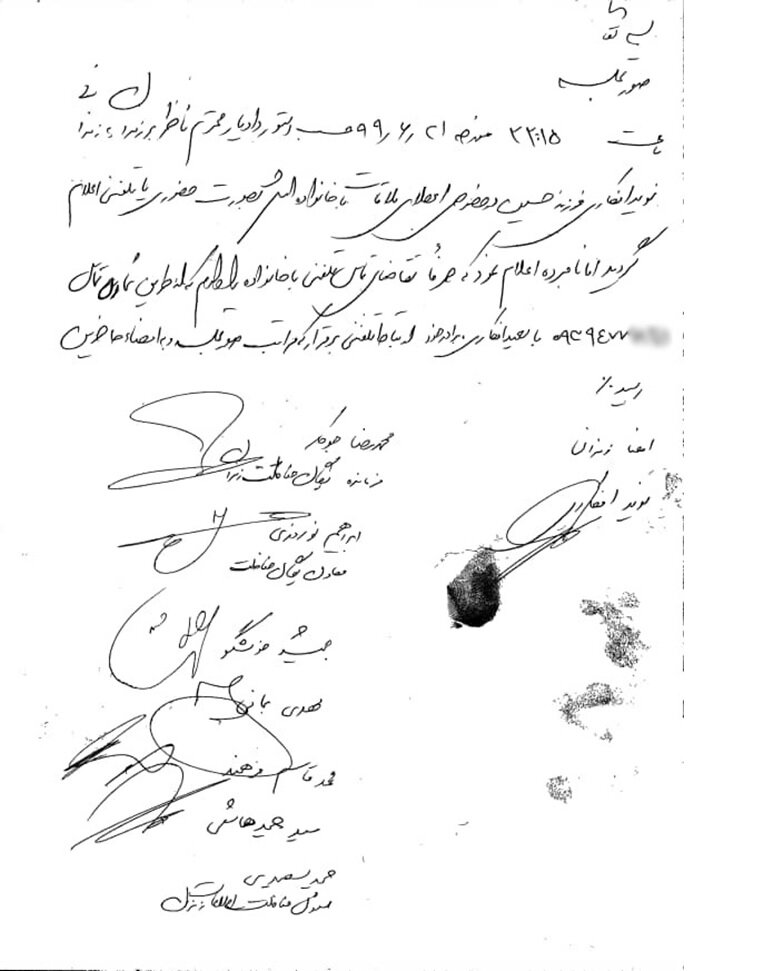 بسمه تعالی
صورتجلسه
ساعت ۲۲:۱۵ مورخه ۹۹/۶/۲۱ حسب دستور دادیار محترم ناظر بر زندان به زندانی
نوید افکاری فرزند حسین در خصوص اعطای ملاقات با خانواده اش بصورت حضوری یا تلفنی اعلام
گردید اما نامبرده اعلام نمود که صرفاً تقاضای تماس تلفنی با خانواده را دارم که از طریق شماره تماس
۰۹۳۹۴۷۷ با سعید افکاری برادر خود ارتباط تلفنی برقرار که مراتب صورتجلسه و به امضاء حاضرین
رسید./
امضا زندانی
نوید افکاری
محمدرضا جوکار
فرمانده یگان حفاظت
ابراهیم نوروزی
معاون یگان حفاظت
جمشید خوشگو
مهدی
محمد قاسم
سید حمید هاشمی
مسئول حفاظت اطلاعات زندان